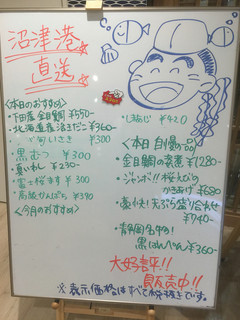 沼津港
直送
<本日のおすすめ>
・下田産 金目鯛 ¥590-
・北海道産 活さだこ ¥360-
いさき ¥300
・黒むつ ¥300
・真いわし ¥230-
・富士桜ます ¥300
・高級かんぱち ¥390
<今月のおすすめ>
・しめあじ ¥420
<本日 自慢の一品>
・金目鯛の煮妻 ¥1280-
・ジャンボ!! 桜えびの
かきあげ ¥680
天ぷら盛り合わせ
¥940-
・静岡名物!
黒はんぺん ¥360-
大好評!!
販売中!!
※表示価格はすべて税抜きです。